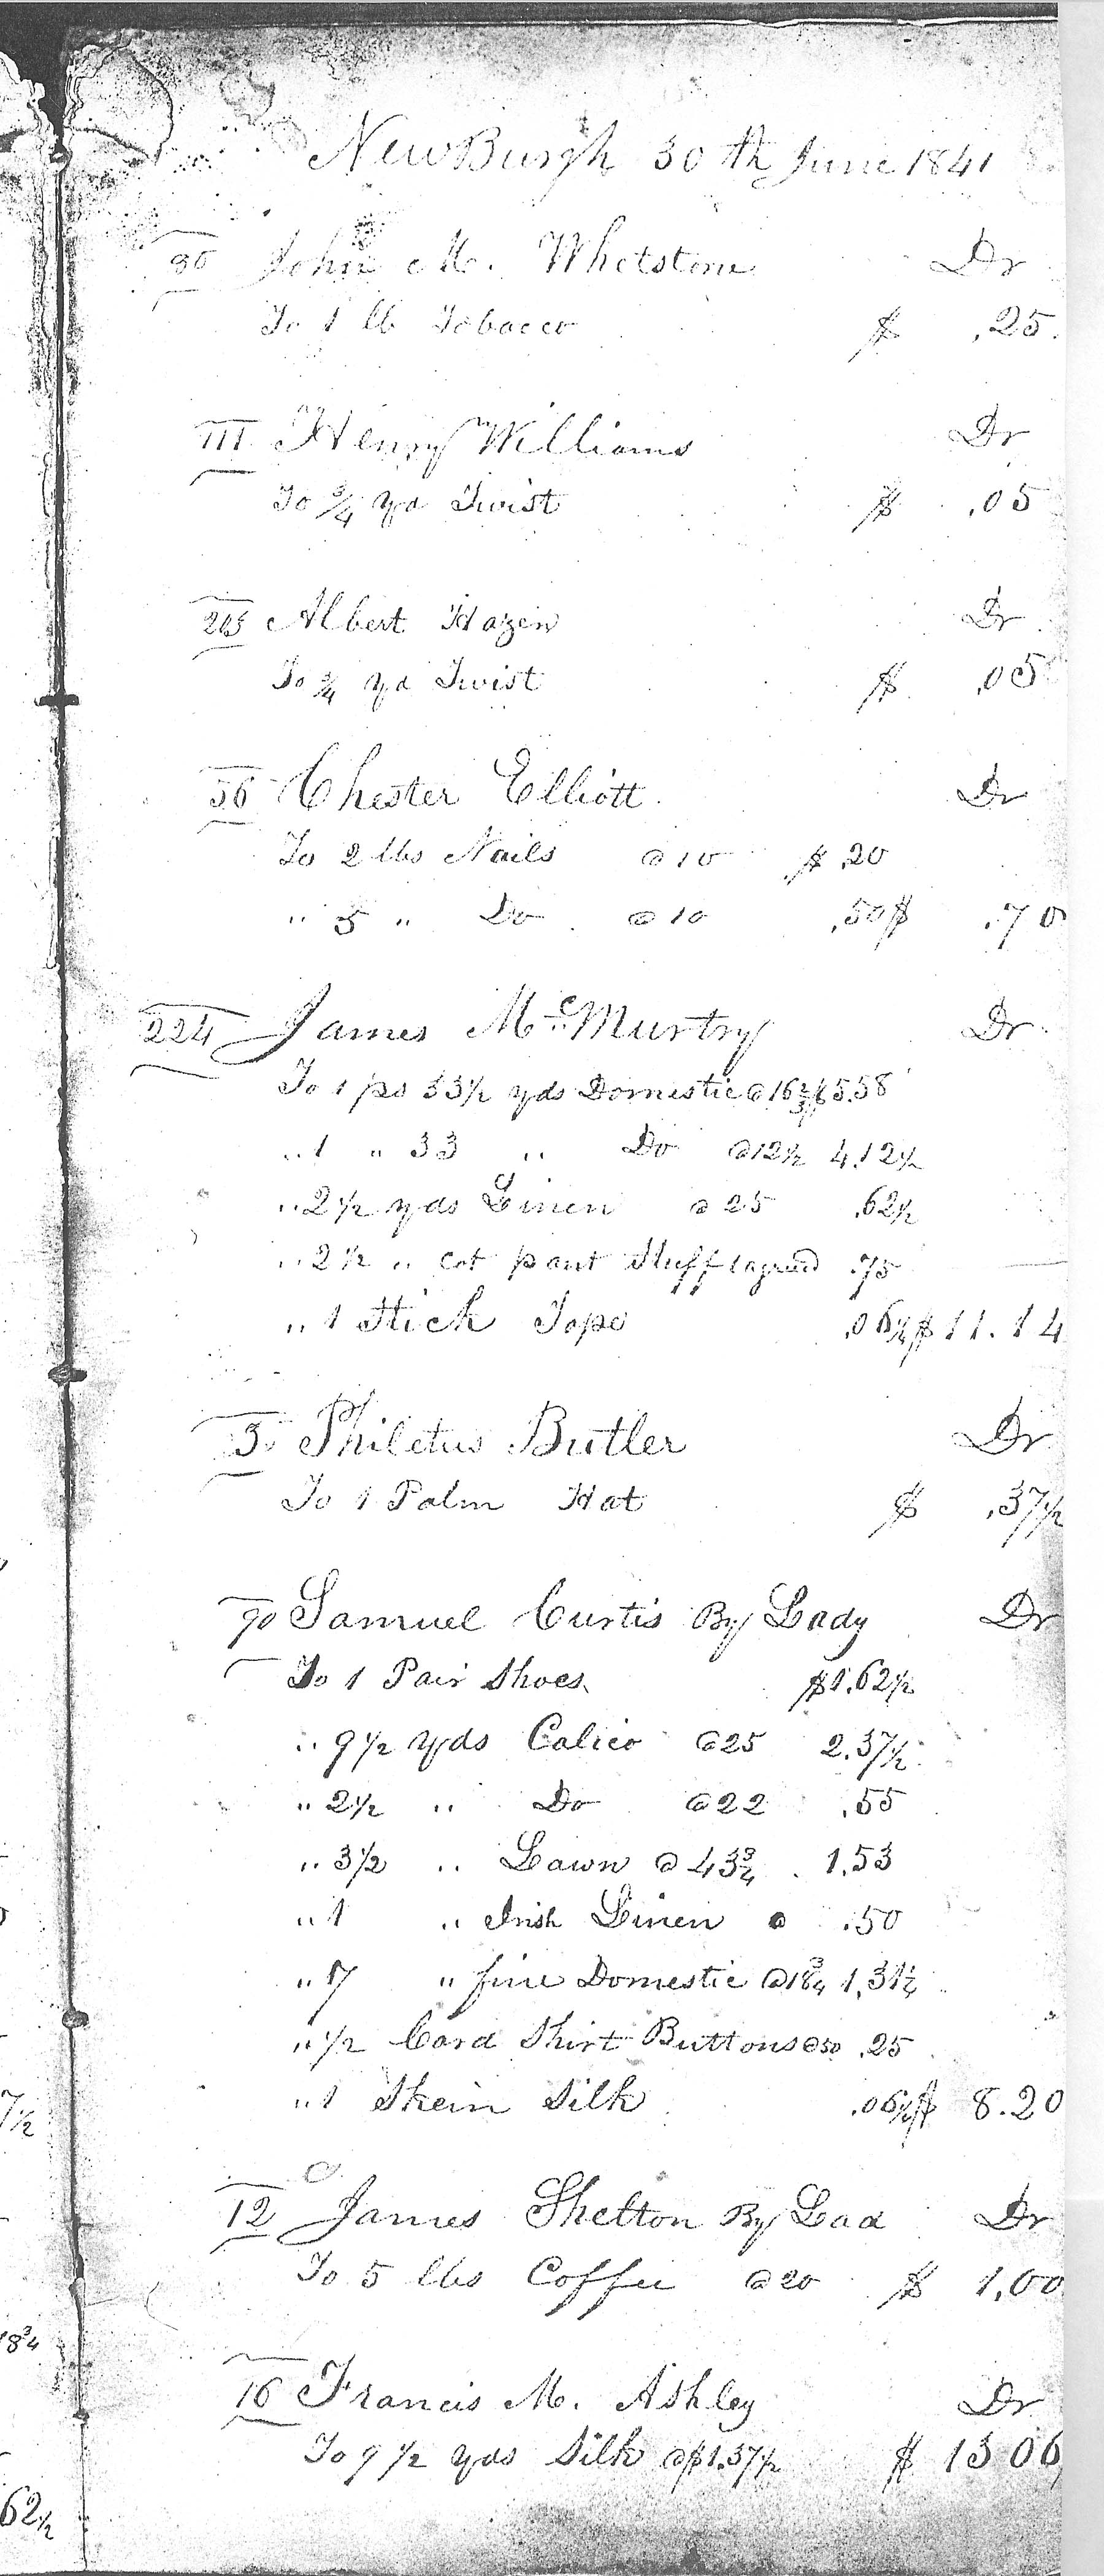 NewBurgh 30th June 1841
30 John M. Whetstone Dr
To 1 lb Tobacco $ .25
111 Henry Williams Dr
To 3/4 yd Twist $ .05
Albert Hazen Dr
To 3/4 yd Twist $ .05
56 Chester Elliott Dr
To 2 lbs Nails @ 10 $ .20
" 5 " Do @ 10 .50 $ .70
224 James McMurtry Dr
To 1 ps 33 1/2 yds Domestic @ 16 2/3 $ 5.58
" 1 " 33 " Do @ 12 1/2 4.12 1/2
" 2 1/2 yds Linen @ 25 .62 1/2
" 2 1/2 " cot pant Stuff agreed .75
" 1 Stick Tape .06 1/4 $ 11.14
3 Philetus Butler Dr
To 1 Palm Hat $ .37 1/2
90 Samuel Curtis By Lady Dr
To 1 Pair Shoes $1.62 1/2
" 9 1/2 yds Calico @ 25 2.37 1/2
" 2 1/2 " Do @ 22 .55
" 3 1/2 " Lawn @ 43 3/4 1.53
" 1 " Irish Linen @ .50
" 7 " fine Domestic @ 18 3/4 1.31 1/4
" 1/2 Card Shirt Buttons @ 50 .25
" 1 Skein Silk .06 1/4 $ 8.20
12 James Shelton By Lad Dr
To 5 lbs Coffee @ 20 $ 1.00
16 Francis M. Ashley Dr
To 9 1/2 yds Silk @ $1.37 1/2 $ 13 06
7 1/2
18 3/4
62 1/2